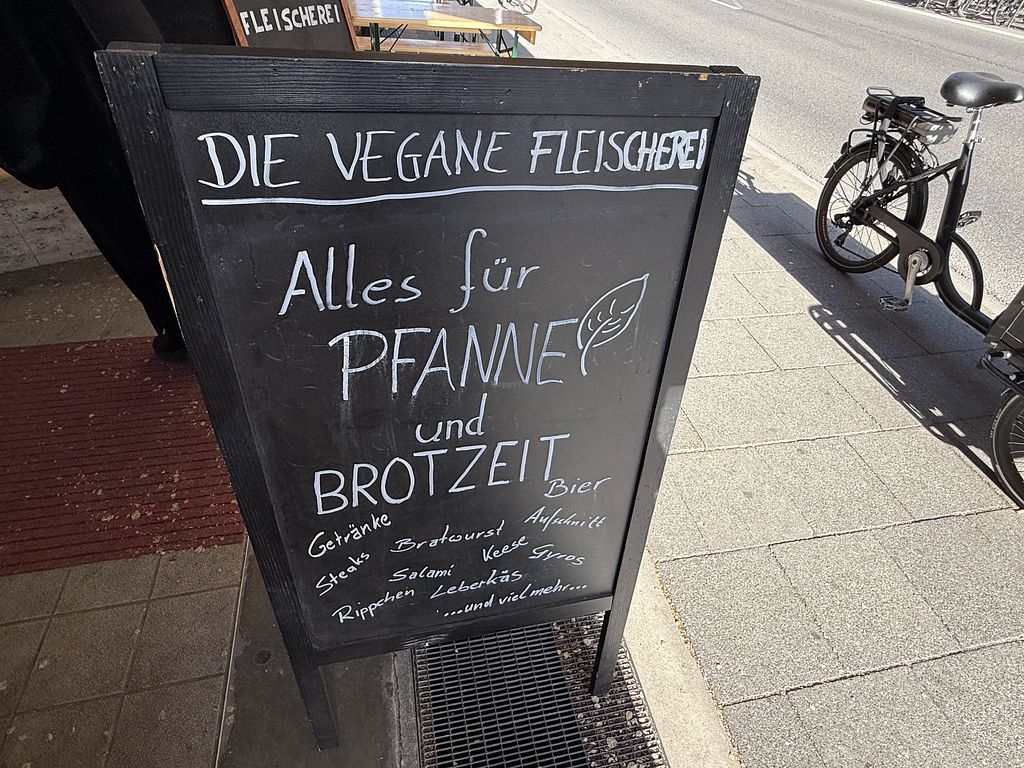 FLEISCHEREI
DIE VEGANE FLEISCHEREI
Alles für
PFANNE
und
BROTZEIT
Bier
Getränke
Steaks Bratwurst Aufschnitt
Salami Veese Gyros
Rippchen Leberkäs
...und viel mehr...